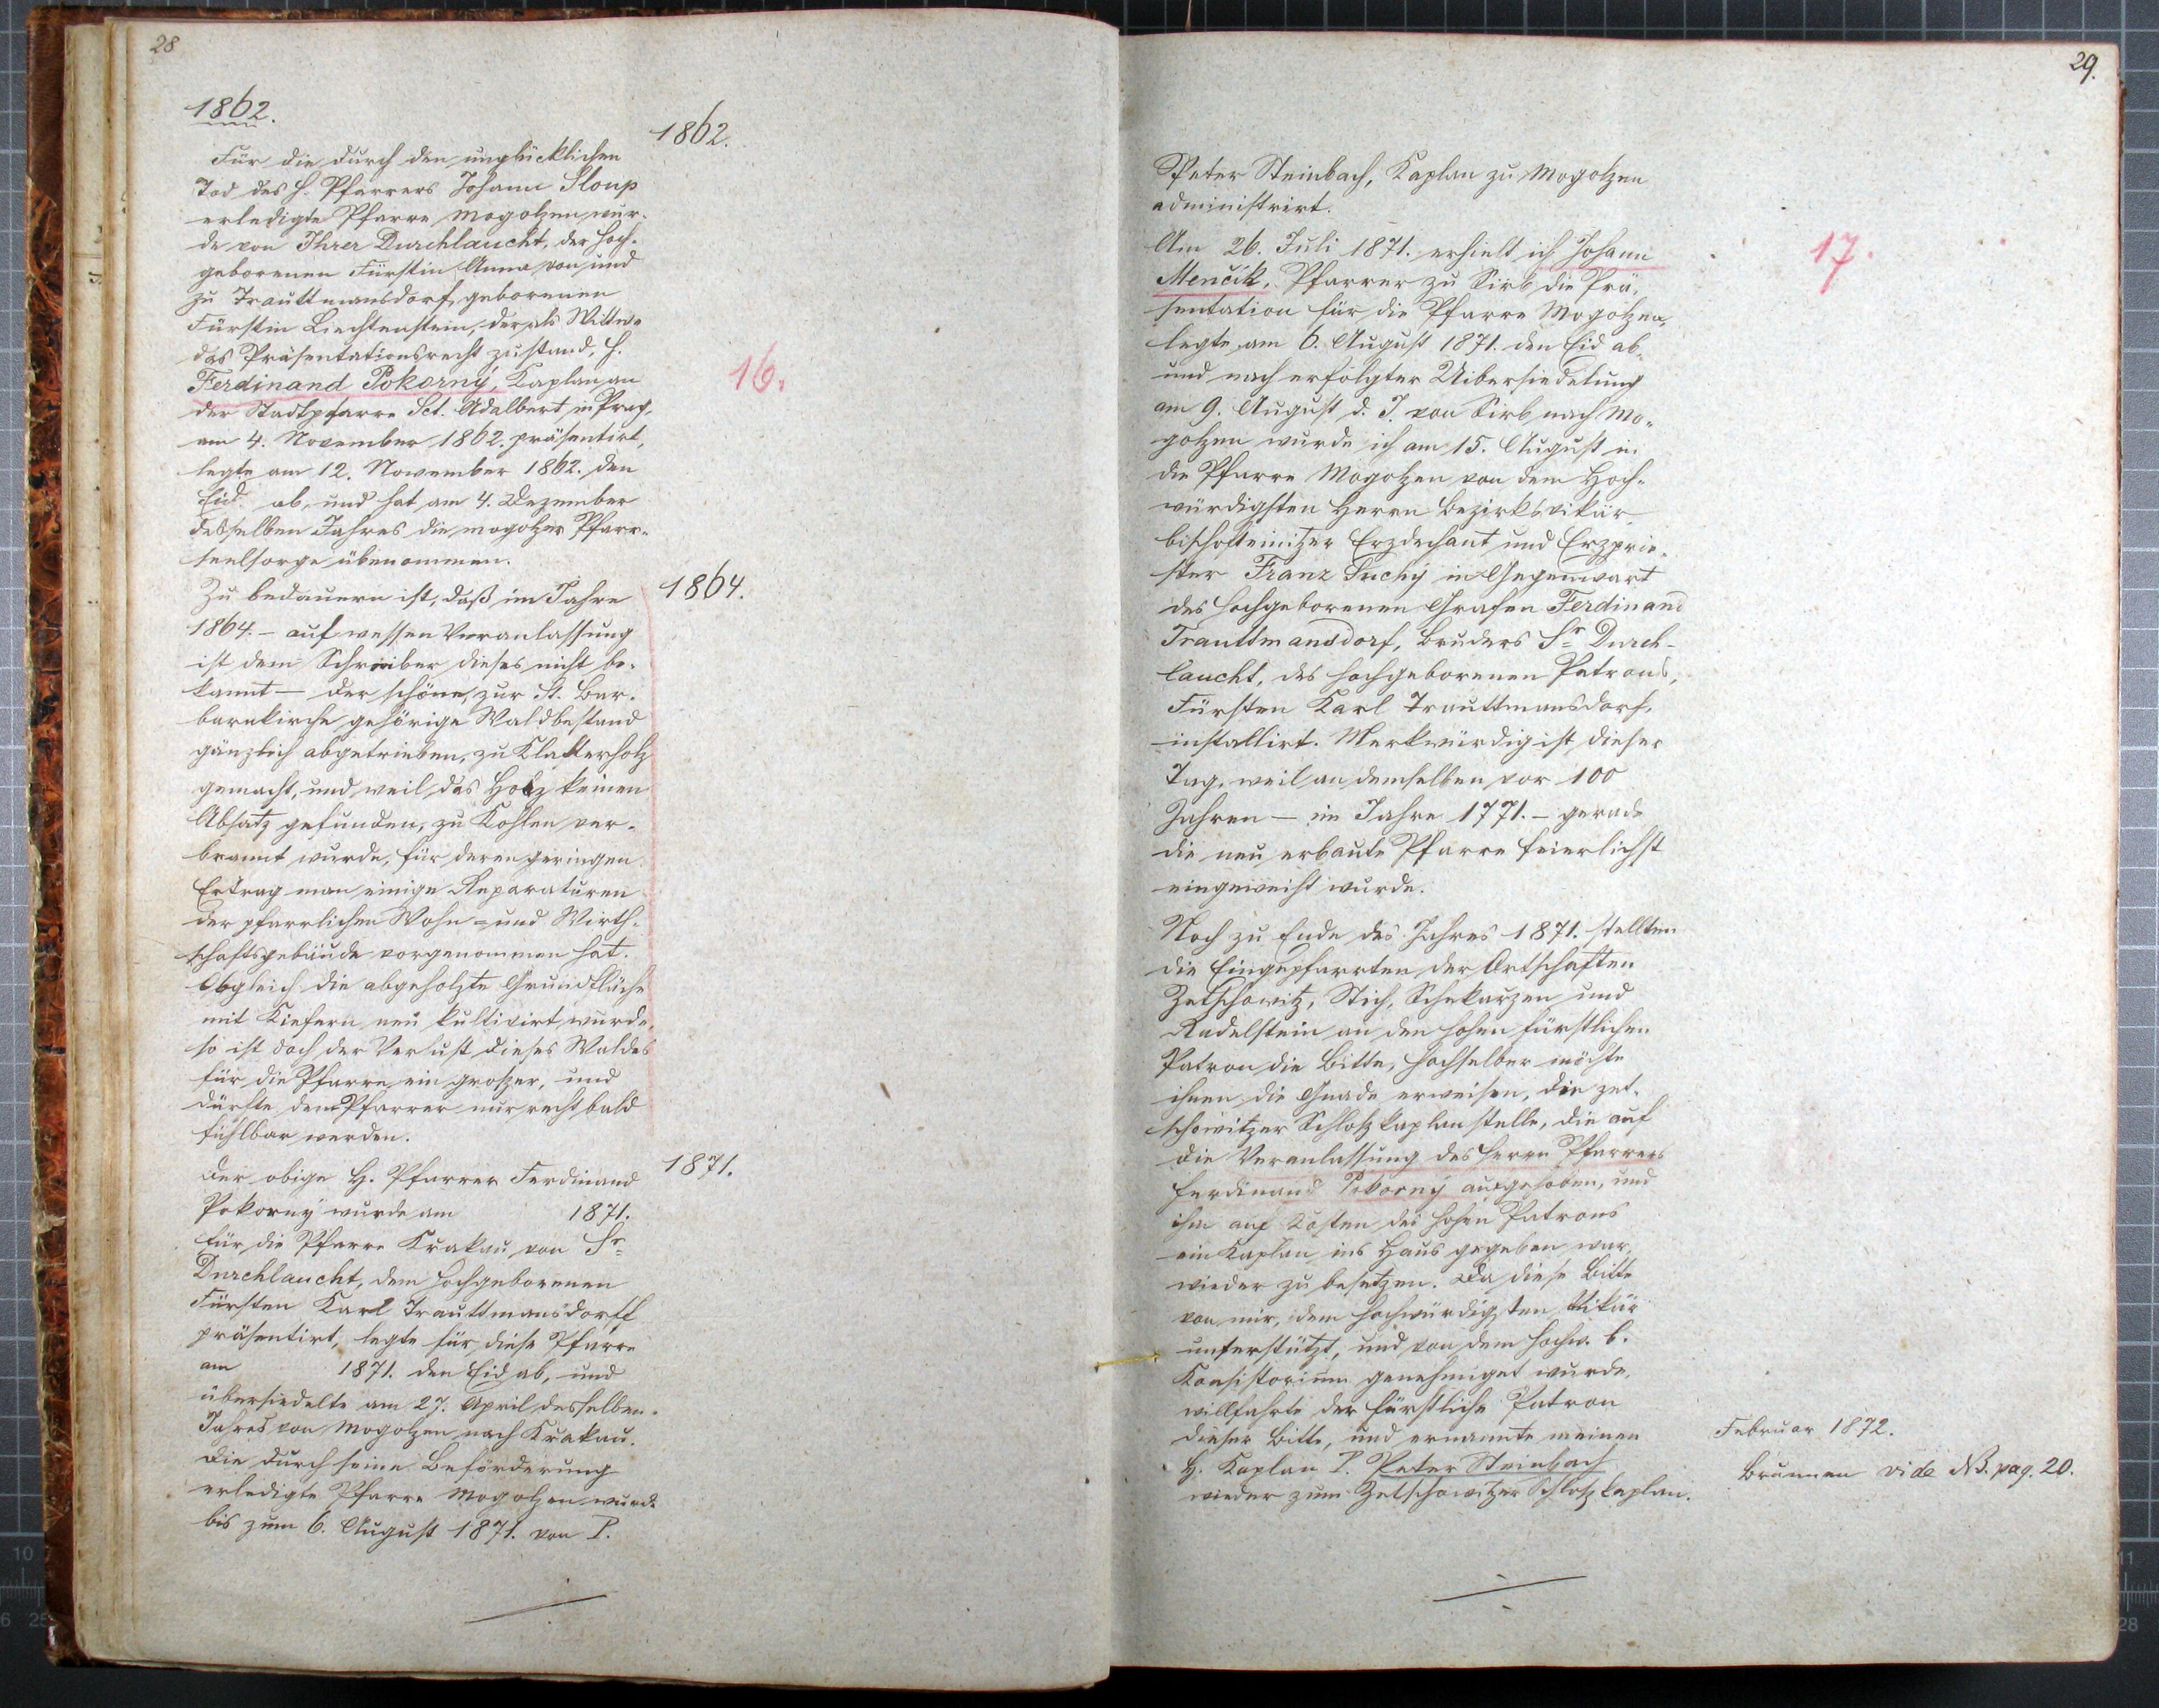 28
1862.
1862.
Für die durch den unglücklichen
Tod des H. Pfarrers Johann Sloup
erledigte Pfarre Mogolzen wur-
de von Ihrer Durchlaucht, der hoch-
geborenen Fürstin Anna von und
zu Trauttmansdorf, geborenen
Fürstin Liechtenstein, der als Wittwe
das Präsentationsrecht zustand, H.
Ferdinand Pokorný, Kaplan an
16.
der Stadtpfarre Sct. Adalbert in Prag,
am 4. November 1862. präsentirt,
legte am 12. November 1862. den
Eid ab, und hat am 4. Dezember
desselben Jahres die mogolzer Pfarr-
seelsorge übernommen.
Zu bedauern ist, daß im Jahre
1864.
1864. – auf wessen Veranlassung
ist dem Schreiber dieses nicht be-
kannt – der schöne, zur St. Bar-
barakirche gehörige Waldbestand
gänzlich abgetrieben, zu Klafterholz
gemacht, und weil das Holz keinen
Absatz gefunden, zu Kohlen ver-
brannt wurde, für deren geringen
Ertrag man einige Reparaturen
der pfarrlichen Wohn- und Wirth-
schaftsgebäude vorgenommen hat.
Obgleich die abgeholzte Grundfläche
mit Kiefern neu kultivirt wurde,
so ist doch der Verlust dieses Waldes
für die Pfarre ein großer, und
dürfte dem Pfarrer nur recht bald
fühlbar werden.
Der obige H. Pfarrer Ferdinand
1871.
Pokorný wurde am 1871.
für die Pfarre Krakau von Sr
Durchlaucht, dem hochgeborenen
Fürsten Karl Trauttmansdorff
präsentirt, legte für diese Pfarre
am 1871. den Eid ab, und
übersiedelte am 27. April desselben
Jahres von Mogolzen nach Krakau.
Die durch seine Beförderung
erledigte Pfarre Mogolzen wurde
bis zum 6. August 1871. von P.
29.
Peter Steinbach, Kaplan zu Mogolzen
administrirt.
Am 26. Juli 1871. erhielt ich Johann
17.
Menčik, Pfarrer zu Sirb die Prä-
sentation für die Pfarre Mogolzen,
legte am 6. August 1871. den Eid ab,
und nach erfolgter Uibersiedelung
am 9. August d. J. von Sirb nach Mo-
golzen wurde ich am 15. August in
die Pfarre Mogolzen von dem Hoch-
würdigsten Herrn Bezirksvikär,
bischofteinitzer Erzdechant und Erzprie-
ster Franz Suchý in Gegenwart
des hochgeborenen Grafen Ferdinand
Trauttmansdorf, Bruders Sr Durch-
laucht, des hochgeborenen Patrons,
Fürsten Karl Trauttmansdorf,
installirt. Merkwürdig ist dieser
Tag, weil an demselben vor 100
Jahren – im Jahre 1771. – gerade
die neu erbaute Pfarre feierlichst
eingeweiht wurde.
Noch zu Ende des Jahres 1871. stellten
die Eingepfarrten der Ortschaften
Zetschowitz, Stich, Schekarzen und
Radelstein an den hohen fürstlichen
Patron die Bitte, hochselber möchte
ihnen die Gnade erweisen, die zet-
schowitzer Schloßkaplanstelle, die auf
die Veranlassung des Herrn Pfarrers
Ferdinand Pokorný aufgehoben, und
ihm auf Kosten des hohen Patrons
ein Kaplan ins Haus gegeben war,
wieder zu besetzen. Da diese Bitte
von mir, dem hochwürdigsten Vikär
unterstützt, und von dem hochw. b.
Konsistorium genehmiget wurde,
willfahrte der fürstliche Patron
dieser Bitte, und ernannte meinen
Februar 1872.
H. Kaplan P. Peter Steinbach
Brunnen vide NB. pag. 20.
wieder zum Zetschowitzer Schloßkaplan.